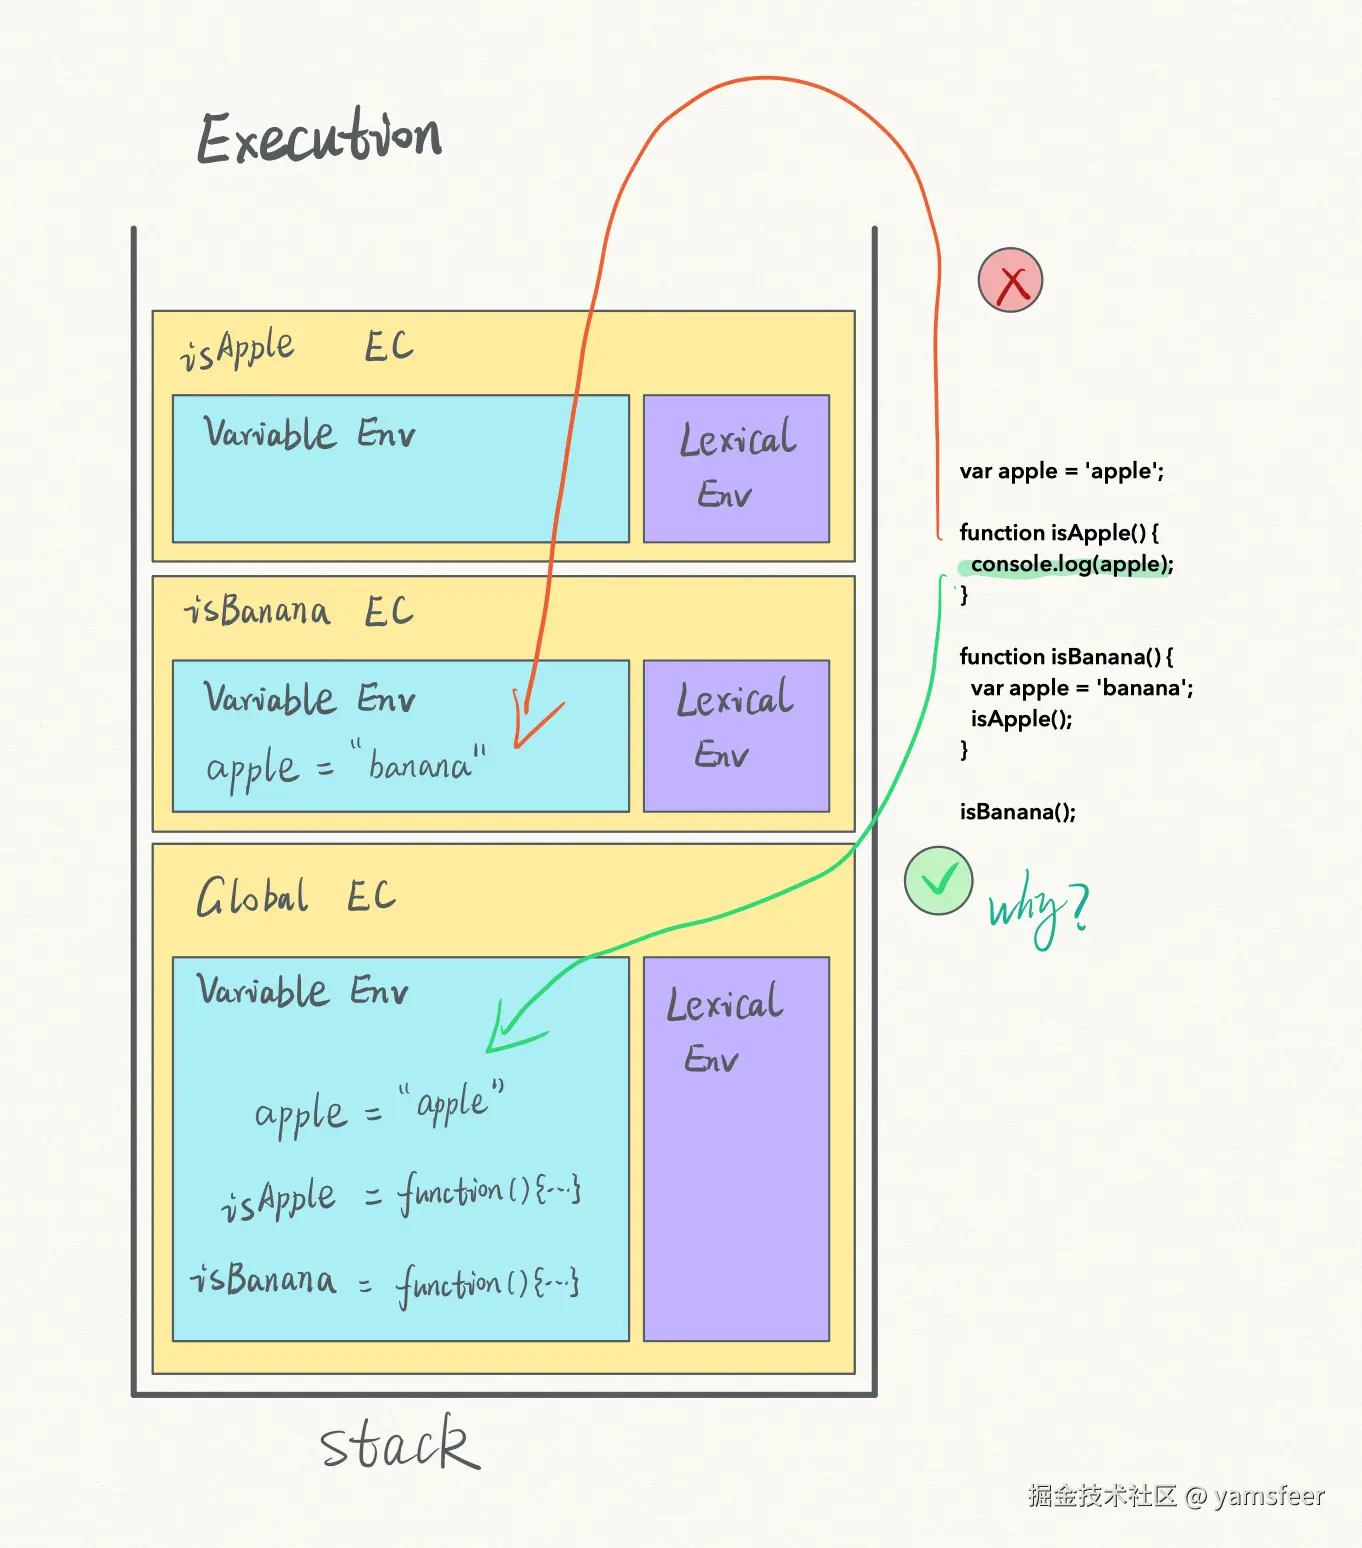 Execution
isApple EC
Variable Env
Lexical
Env
isBanana EC
Variable Env
apple = "banana"
Lexical
Env
Global EC
Variable Env
apple = "apple"
isApple = function(){...}
isBanana = function(){...}
Lexical
Env
stack
X
var apple = 'apple';
function isApple() {
console.log(apple);
}
function isBanana() {
var apple = 'banana';
isApple();
}
isBanana();
why?
掘金技术社区 @ yamsfeer